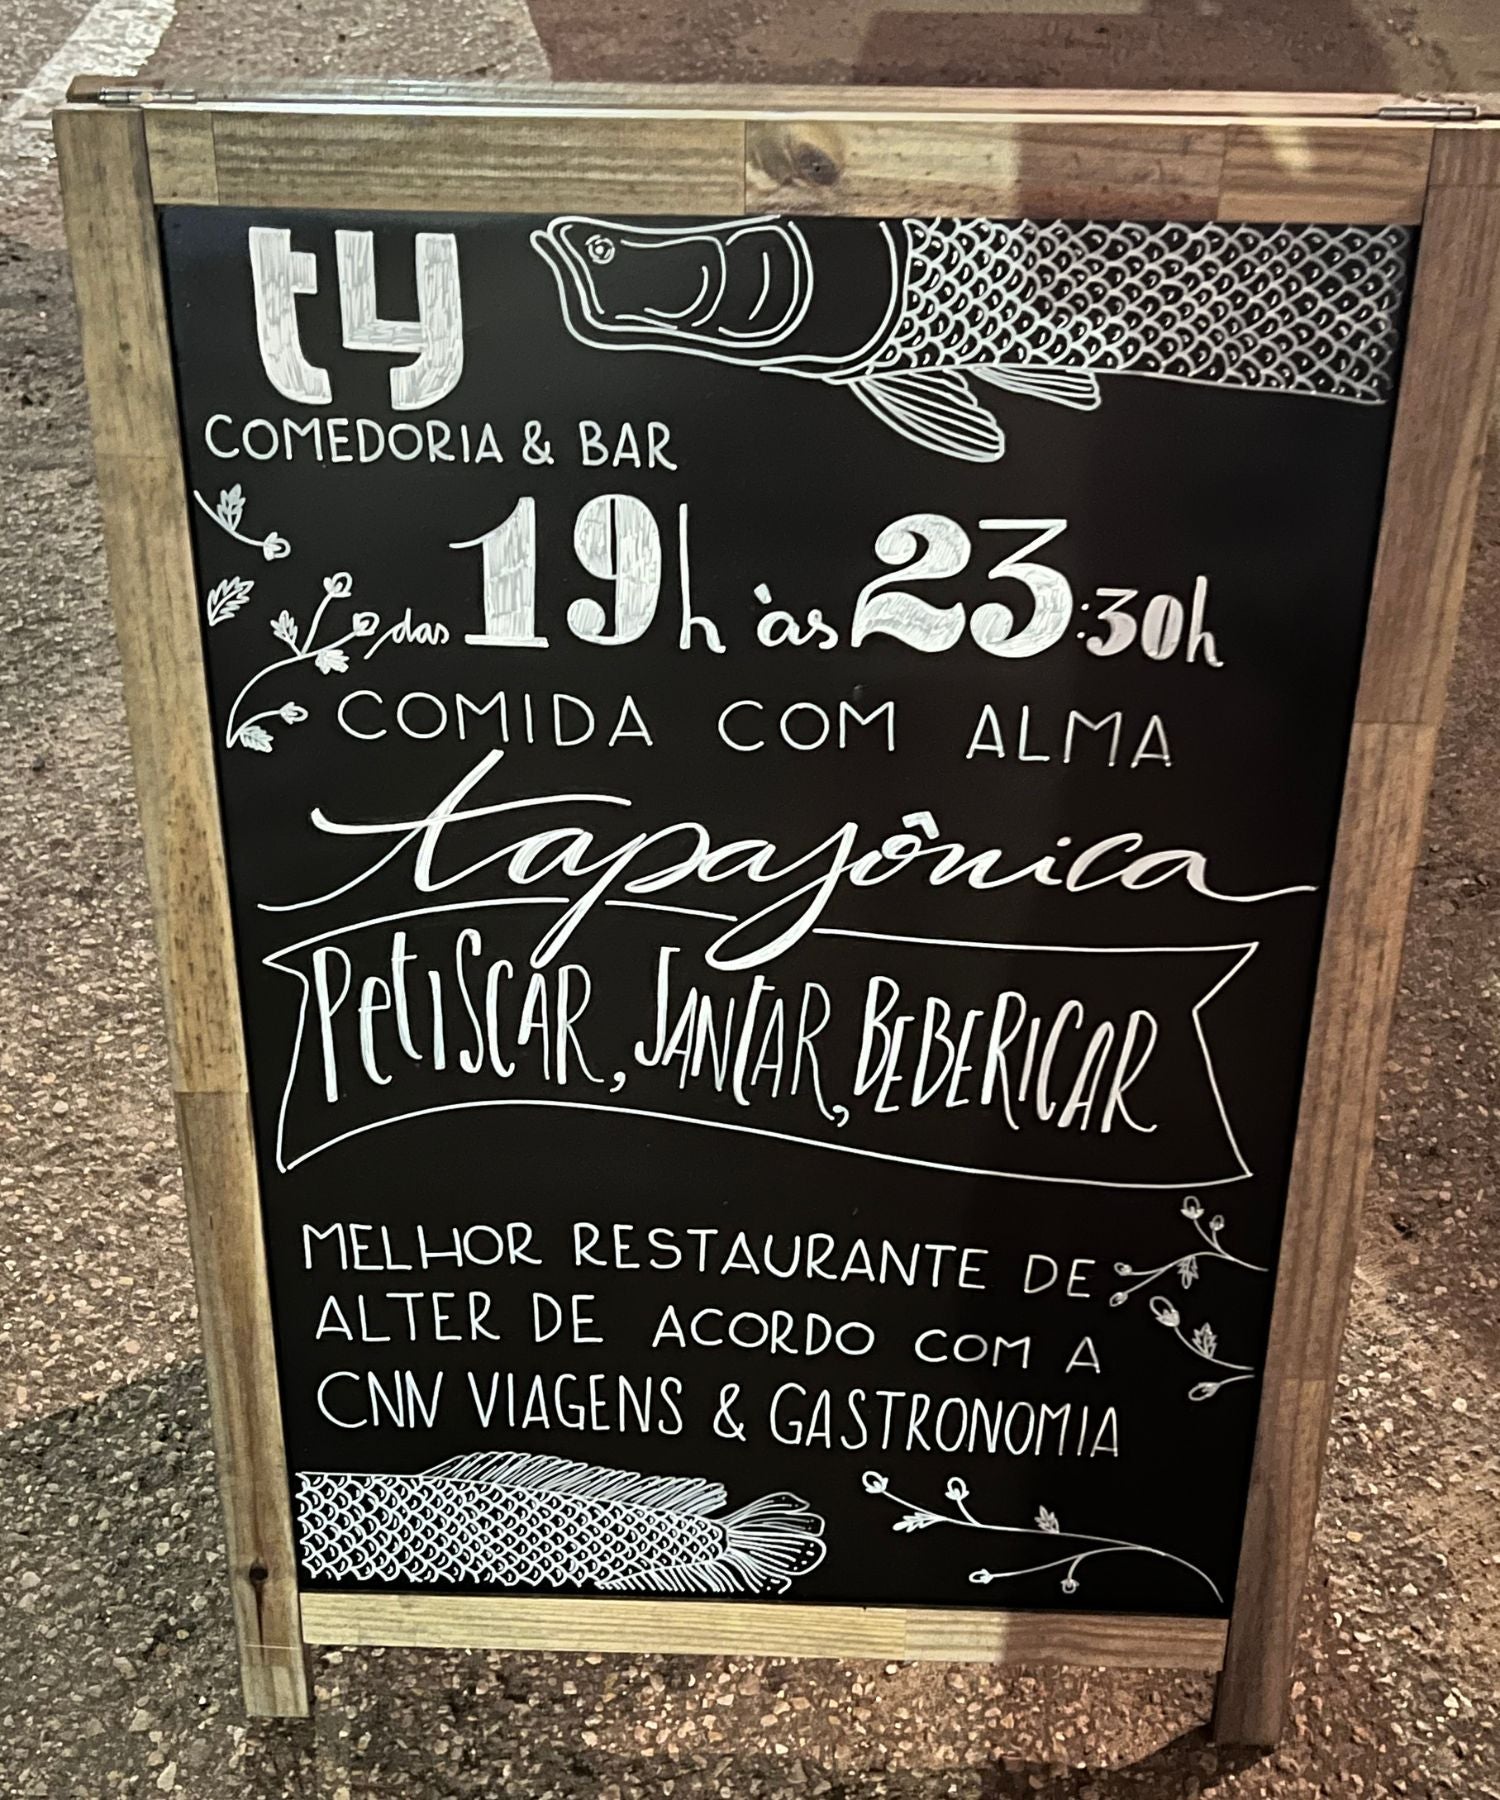 ty
COMEDORIA & BAR
das 19h às 23:30h
COMIDA COM ALMA
tapajônica
PETISCAR, JANTAR, BEBERICAR
MELHOR RESTAURANTE DE
ALTER DE ACORDO COM A
CNN VIAGENS & GASTRONOMIA